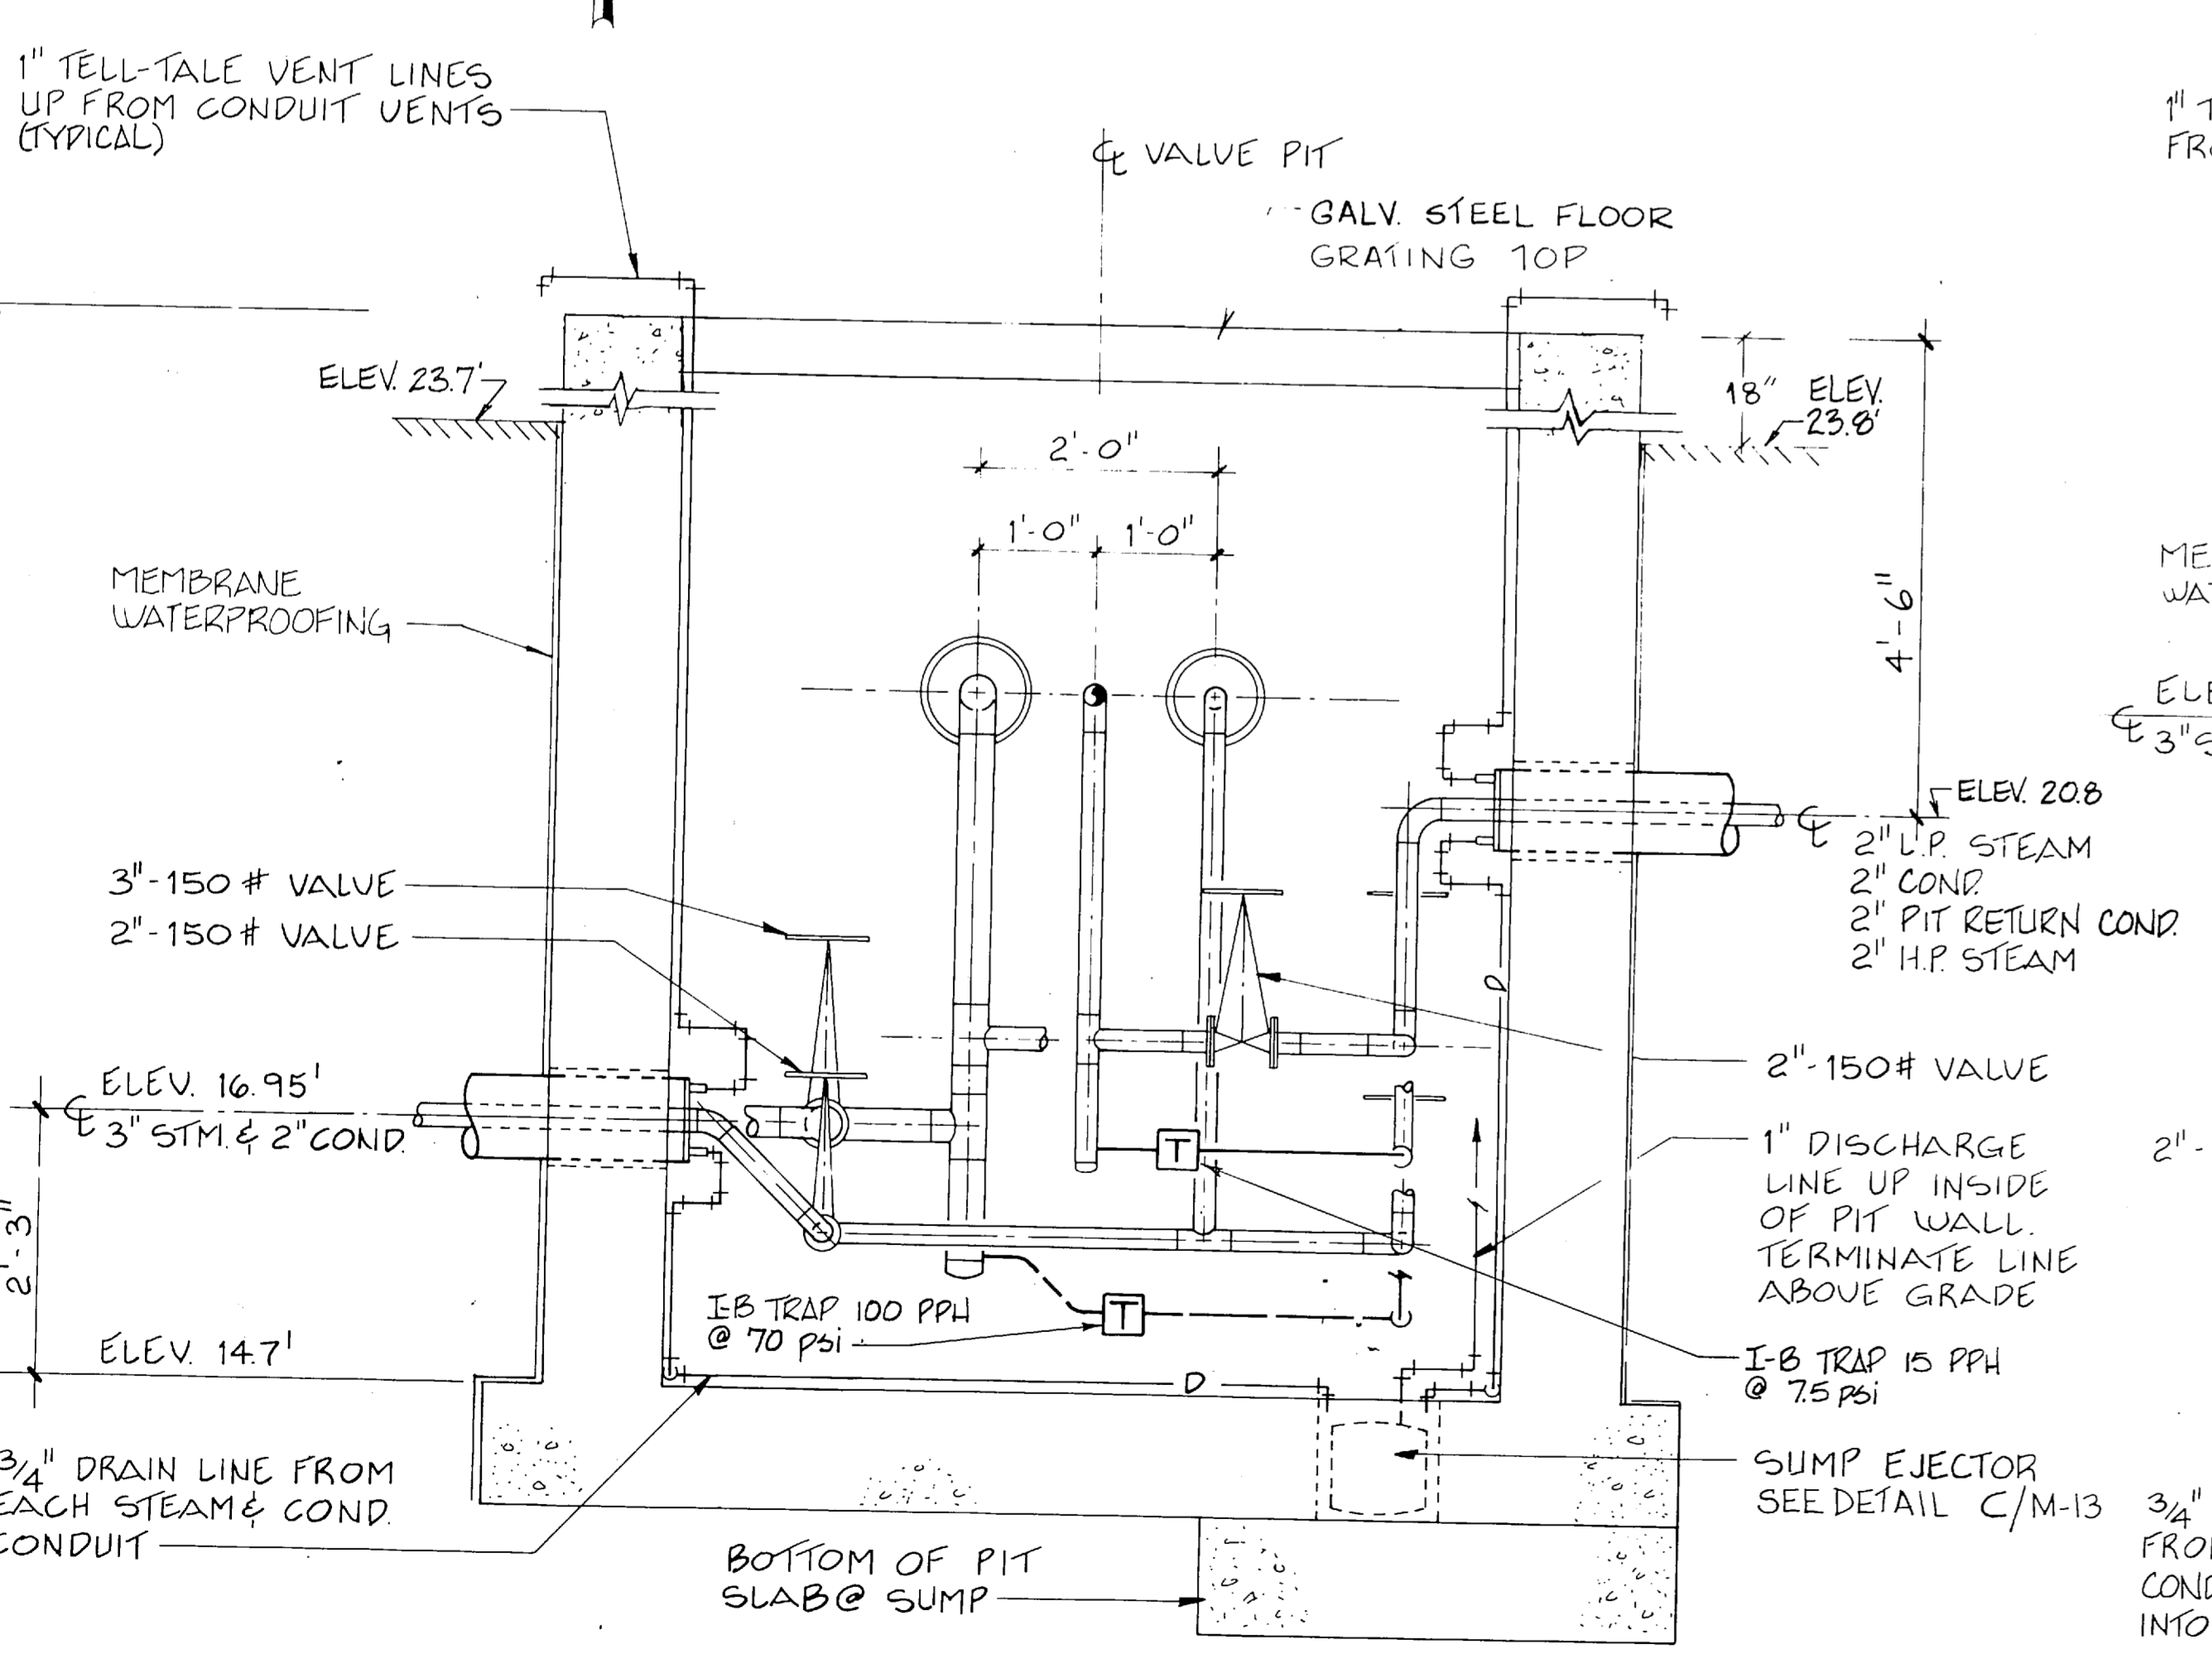 1" TELL-TALE VENT LINES
UP FROM CONDUIT VENTS
(TYPICAL)
℄ VALUE PIT
GALV. STEEL FLOOR
GRATING TOP
ELEV. 23.7'
18"
ELEV.
23.8'
2'-0"
1'-0"
1'-0"
MEMBRANE
WATERPROOFING
4'-6"
ELEV. 20.8
℄
2" L.P. STEAM
2" COND.
2" PIT RETURN COND.
2" H.P. STEAM
3"-150# VALUE
2"-150# VALUE
D
2"-150# VALUE
ELEV. 16.95'
℄ 3" STM. & 2" COND.
T
1" DISCHARGE
LINE UP INSIDE
OF PIT WALL.
TERMINATE LINE
ABOVE GRADE
2'-3"
I-B TRAP 100 PPH
@ 70 psi
T
ELEV. 14.7'
I-B TRAP 15 PPH
@ 7.5 psi
D
3/4" DRAIN LINE FROM
EACH STEAM & COND.
CONDUIT
SUMP EJECTOR
SEE DETAIL C/M-13
BOTTOM OF PIT
SLAB @ SUMP
1" T
FR
ME
WA
ELE
℄ 3" S
2"-
3/4"
FRO
COND
INTO